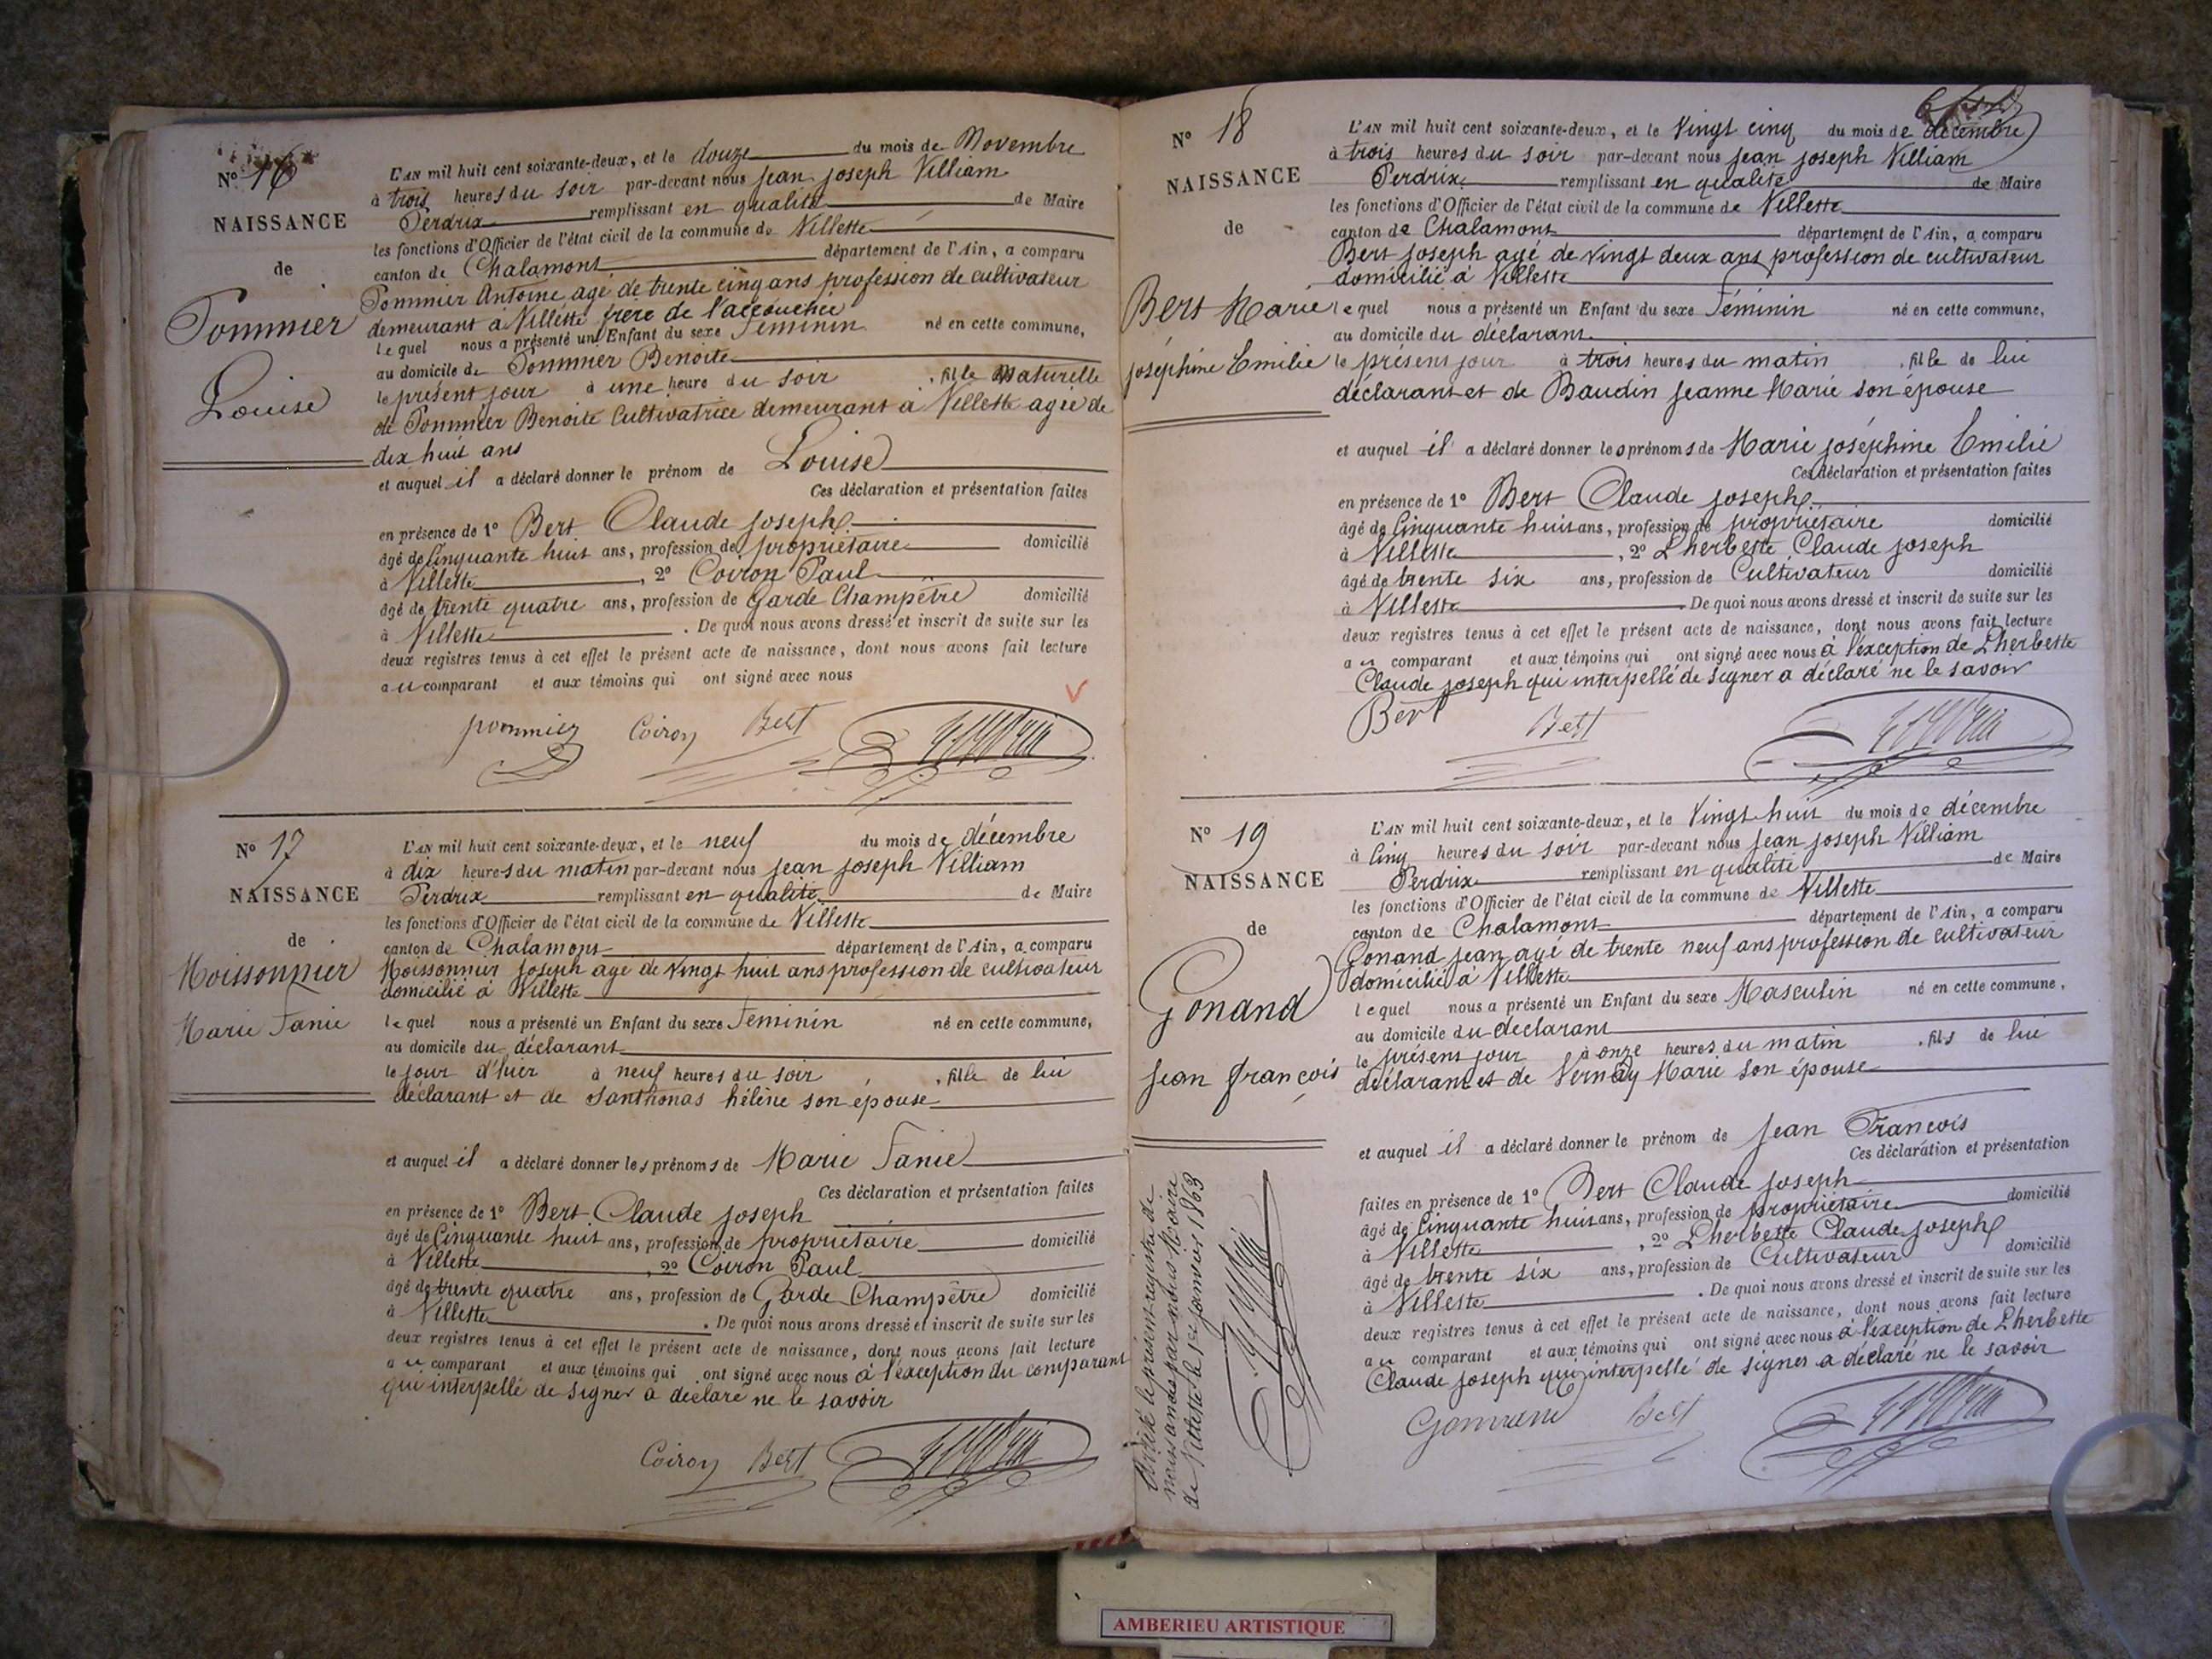 N° 16
NAISSANCE
de
Pommier
Louise
L'AN mil huit cent soixante-deux, et le douze du mois de Novembre
à trois heures du soir par-devant nous jean joseph Villiam
Perdrix remplissant en qualité de Maire
les fonctions d'Officier de l'état civil de la commune de Villette
canton de Chalamont département de l'Ain, a comparu
Pommier Antoine agé de trente cinq ans profession de cultivateur
demeurant à Villette frère de l'accouchée
lequel nous a présenté un Enfant du sexe Féminin né en cette commune,
au domicile de Pommier Benoite
le présent jour à une heure du soir , fille Naturelle
de Pommier Benoite Cultivatrice demeurant à Villette agée de
dix huit ans
et auquel il a déclaré donner le prénom de Louise
Ces déclaration et présentation faites
en présence de 1° Bert Claude joseph
âgé de Cinquante huit ans, profession de propriétaire domicilié
à Villette , 2° Coiron Paul
âgé de trente quatre ans, profession de Garde Champêtre domicilié
à Villette . De quoi nous avons dressé et inscrit de suite sur les
deux registres tenus à cet effet le présent acte de naissance, dont nous avons fait lecture
au comparant et aux témoins qui ont signé avec nous
pommier Coiron Bert
N° 17
NAISSANCE
de
Moissonnier
Marie Fanie
L'AN mil huit cent soixante-deux, et le neuf du mois de décembre
à dix heures du matin par-devant nous jean joseph Villiam
Perdrix remplissant en qualité de Maire
les fonctions d'Officier de l'état civil de la commune de Villette
canton de Chalamont département de l'Ain, a comparu
Moissonnier joseph agé de vingt huit ans profession de cultivateur
domicilié à Villette
lequel nous a présenté un Enfant du sexe Féminin né en cette commune,
au domicile du déclarant
le jour d'hier à neuf heures du soir , fille de lui
déclarant et de Santhonas hélène son épouse
et auquel il a déclaré donner les prénoms de Marie Fanie
Ces déclaration et présentation faites
en présence de 1° Bert Claude joseph
âgé de Cinquante huit ans, profession de propriétaire domicilié
à Villette , 2° Coiron Paul
âgé de trente quatre ans, profession de Garde Champêtre domicilié
à Villette . De quoi nous avons dressé et inscrit de suite sur les
deux registres tenus à cet effet le présent acte de naissance, dont nous avons fait lecture
au comparant et aux témoins qui ont signé avec nous à l'exception du comparant
qui interpellé de signer a déclaré ne le savoir
Coiron Bert
N° 18
NAISSANCE
de
Bert Marie
joséphine Emilie
L'AN mil huit cent soixante-deux, et le Vingt cinq du mois de décembre
à trois heures du soir par-devant nous jean joseph Villiam
Perdrix remplissant en qualité de Maire
les fonctions d'Officier de l'état civil de la commune de Villette
canton de Chalamont département de l'Ain, a comparu
Bert joseph agé de vingt deux ans profession de cultivateur
domicilié à Villette
lequel nous a présenté un Enfant du sexe Féminin né en cette commune,
au domicile du déclarant
le présent jour à trois heures du matin , fille de lui
déclarant et de Baudin jeanne Marie son épouse
et auquel il a déclaré donner les prénoms de Marie joséphine Emilie
Ces déclaration et présentation faites
en présence de 1° Bert Claude joseph
âgé de Cinquante huit ans, profession de propriétaire domicilié
à Villette , 2° Lherbette Claude joseph
âgé de trente six ans, profession de Cultivateur domicilié
à Villette . De quoi nous avons dressé et inscrit de suite sur les
deux registres tenus à cet effet le présent acte de naissance, dont nous avons fait lecture
au comparant et aux témoins qui ont signé avec nous à l'exception de Lherbette
Claude joseph qui interpellé de signer a déclaré ne le savoir
Bert Bert
N° 19
NAISSANCE
de
Gonand
jean françois
L'AN mil huit cent soixante-deux, et le Vingt huit du mois de décembre
à Cinq heures du soir par-devant nous jean joseph Villiam
Perdrix remplissant en qualité de Maire
les fonctions d'Officier de l'état civil de la commune de Villette
canton de Chalamont département de l'Ain, a comparu
Gonand jean agé de trente neuf ans profession de cultivateur
domicilié à Villette
lequel nous a présenté un Enfant du sexe Masculin né en cette commune,
au domicile du déclarant
le présent jour à onze heures du matin , fils de lui
déclarant et de Vernay Marie son épouse
et auquel il a déclaré donner le prénom de jean François
Ces déclaration et présentation
faites en présence de 1° Bert Claude joseph
âgé de Cinquante huit ans, profession de propriétaire domicilié
à Villette , 2° Lherbette Claude joseph
âgé de trente six ans, profession de Cultivateur domicilié
à Villette . De quoi nous avons dressé et inscrit de suite sur les
deux registres tenus à cet effet le présent acte de naissance, dont nous avons fait lecture
au comparant et aux témoins qui ont signé avec nous à l'exception de Lherbette
Claude joseph qui interpellé de signer a déclaré ne le savoir
Bert
le présent registre de
naissances par nous Maire
de Villette le 1er janvier 1863
AMBERIEU ARTISTIQUE